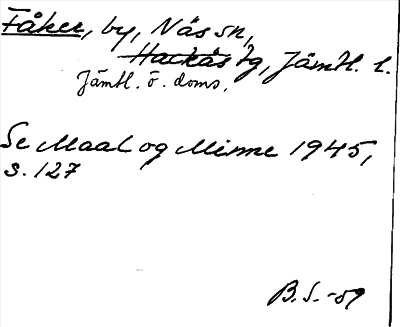 Fåker, by, Näs sn,
Hackås tg, Jämtl. l.
Jämtl. ö. doms.
Se Maal og Minne 1945,
s. 127
B.S. -59